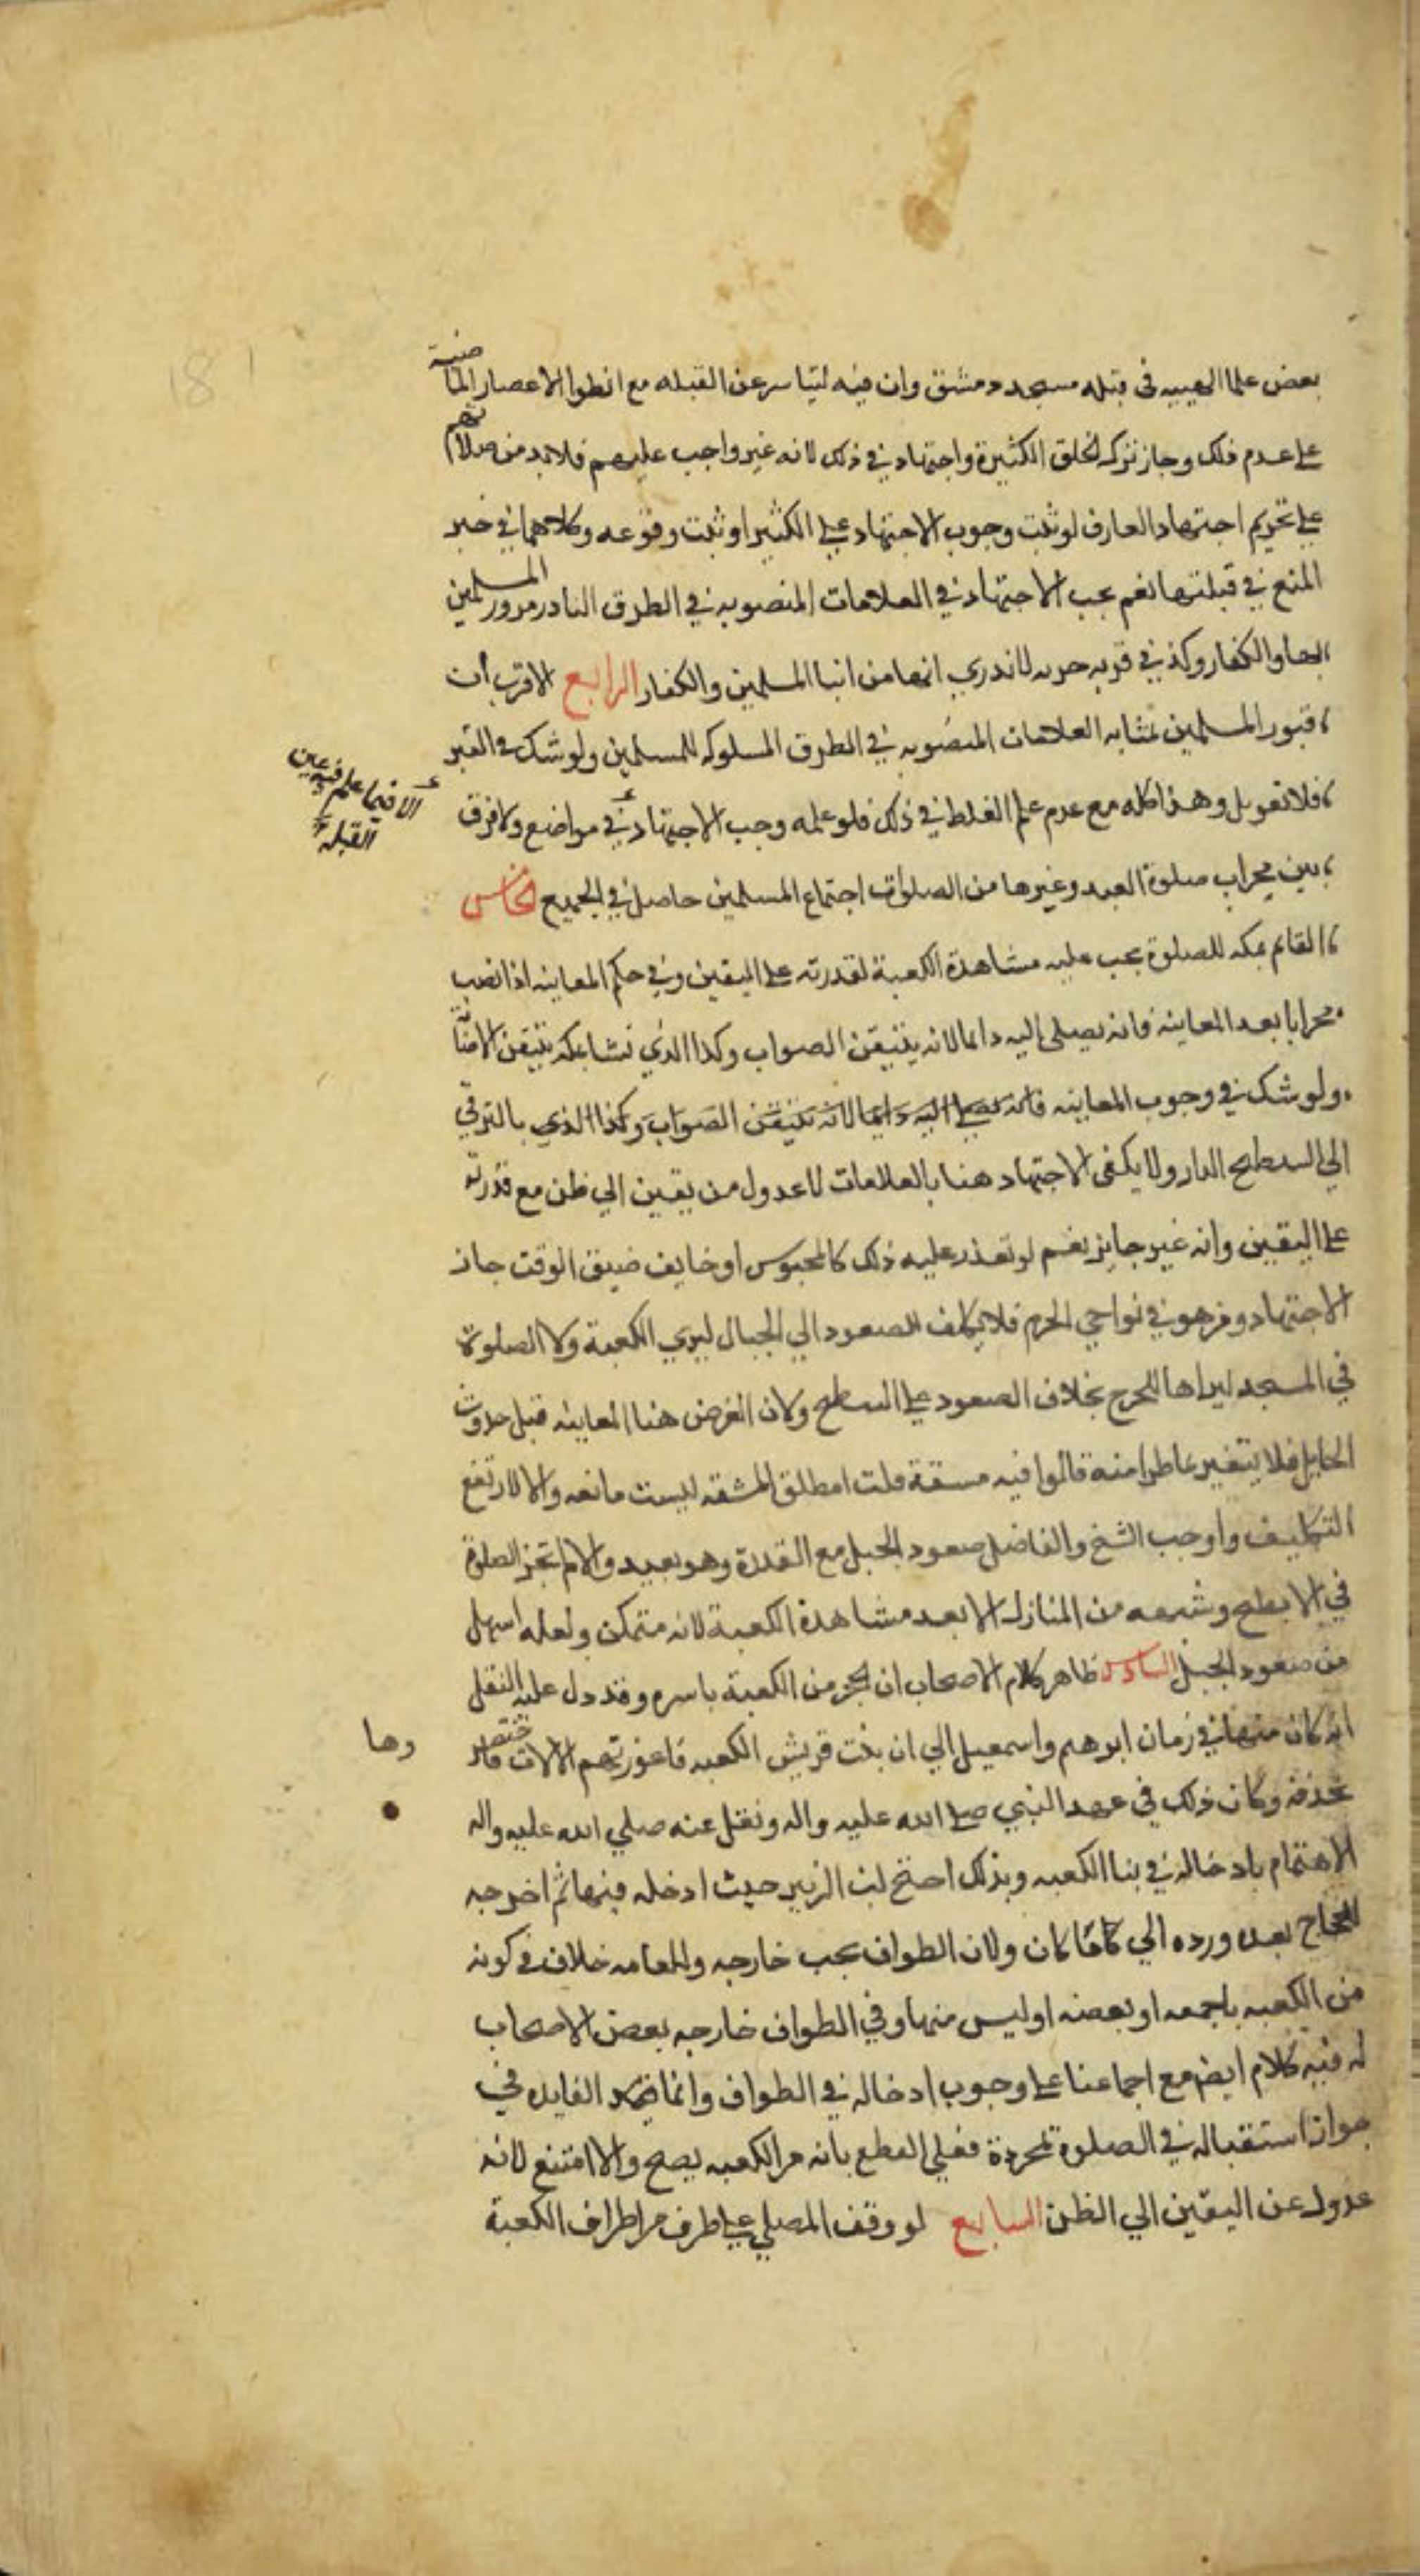 بعض علما الهيية في قبله مسجد دمشق وان فيه تياسر عن القبله مع انطوا الاعصار الماضية
على عدم ذلك وجاز تركه لخلق الكثيرة واجتهاد في ذلك لانه غير واجب عليهم فلا بد من صلاتهم
على تحريم اجتهاد العارف لو ثبت وجوب الاجتهاد على الكثير او ثبت وقوعه وكلاهما في خبر
المنع في قبلتها نعم يجب الاجتهاد في العلامات المنصوبه في الطرق النادر مرور المسلمين
بها والكفار وكذا في قريه خربه لا ندري انها من انبا المسلمين والكفار الرابع الاقرب ان
قبور المسلمين تشابه العلامات المنصوبه في الطرق المسلوكه للمسلمين ولو شك في القبر
فلا تعويل وهذا كله مع عدم علم الغلط في ذلك فلو علمه وجب الاجتهاد في مواضع ولا فرق
الا فيما علم فيه عين
القبلة
بين محراب صلوة العيد وغيرها من الصلوات اجتماع المسلمين حاصل في الجميع الخامس
القائم بمكه للصلوة يجب عليه مشاهدة الكعبة لقدرته على اليقين وفي حكم المعاينه اذا نصب
محرابا بعد المعاينه فانه يصلي اليه داىما لانه يتيقن الصواب وكذا الذي نشا بمكه تيقن الاصابة
ولو شك في وجوب المعاينه فانه يصلي اليه دايما لانه تيقن الصواب وكذا الذي بالترقي
الي السطح الدار ولا يكفي الاجتهاد هنا بالعلامات لا عدول من يقين الي ظن مع قدرته
على اليقين وانه غير جايز نعم لو تعذر عليه ذلك كالمحبوس او خايف ضيق الوقت جاز
الاجتهاد ومن هو في نواحي الحرم فلا يكلف الصعود الي الجبال ليري الكعبة ولا الصلوة
في المسجد ليراها للحرج بخلاف الصعود على السطح ولان الغرض هنا المعاينه قبل حدوث
الحايل فلا يتغير بما طرا منه قالوا فيه مشقة قلت امطلق المشقه ليست مانعه والا لارتفع
التكليف واوجب الشيخ والفاضل صعود الجبل مع القدرة وهو بعيد والا لم تجز الصلوة
في الابطح وشبهه من المنازل الا بعد مشاهدة الكعبة لانه متمكن ولعله اسهل
من صعود الجبل السادس ظاهر كلام الاصحاب ان الحجر من الكعبة باسره وقد دل عليه النقل
انه كان منها في زمان ابرهيم واسمعيل الي ان بنت قريش الكعبه فاعوزتهم الالات فاختصروها
بحذفه وكان ذلك في عهد النبي صلى الله عليه واله ونقل عنه صلي الله عليه واله
الاهتمام بادخاله في بنا الكعبه وبذلك احتج ابن الزبير حيث ادخله فيها ثم اخرجه
الحجاج بعده ورده الي كاما كان ولان الطواف يجب خارجه وللعامه خلاف في كونه
من الكعبه باجمعه او بعضه او ليس منها وفي الطواف خارجه بعض الاصحاب
له فيه كلام ايضا مع اجماعنا على وجوب ادخاله في الطواف وانما الفايده في
جواز استقباله في الصلوة لمجرده فعلي القطع بانه من الكعبه يصح والا امتنع لانه
عدول عن اليقين الي الظن السابع لو وقف المصلي على طرف من اطراف الكعبة